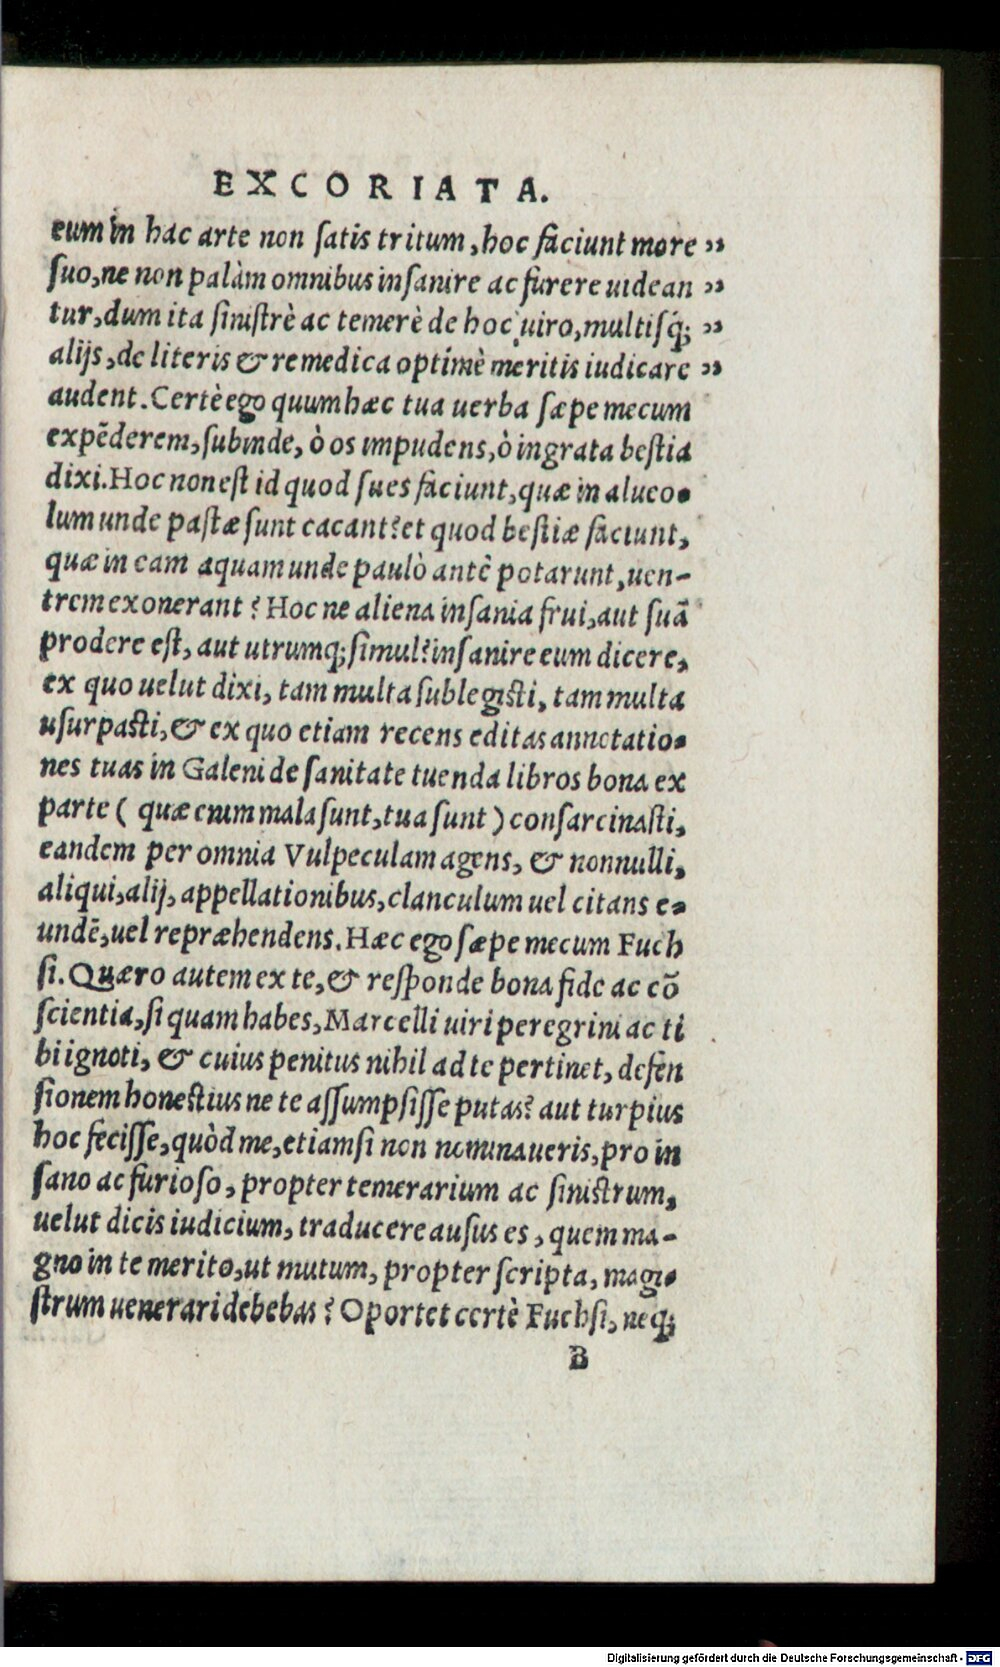 EXCORIATA.
eum in hac arte non ſatis tritum, hoc faciunt more ”
ſuo, ne non palàm omnibus inſanire ac furere uidean ”
tur, dum ita ſiniſtrè ac temerè de hoc uiro, multiſq́; ”
alijs, de literis & re medica optimè meritis iudicare ”
audent. Certè ego quum hæc tua uerba ſæpe mecum
expẽderem, ſubinde, ò os impudens, ò ingrata beſtia
dixi. Hoc non eſt id quod ſues faciunt, quæ in alueo-
lum unde paſtæ ſunt cacant? et quod beſtiæ faciunt,
quæ in eam aquam unde paulò antè potarunt, uen-
trem exonerant? Hoc ne aliena inſania frui, aut ſuã
prodere eſt, aut utrumq; ſimul? inſanire eum dicere,
ex quo uelut dixi, tam multa ſublegiſti, tam multa
uſurpaſti, & ex quo etiam recens editas annotatio-
nes tuas in Galeni de ſanitate tuenda libros bona ex
parte ( quæ enim mala ſunt, tua ſunt ) conſarcinaſti,
eandem per omnia Vulpeculam agens, & nonnulli,
aliqui, alij, appellationibus, clanculum uel citans e-
undẽ, uel repræhendens. Hæc ego ſæpe mecum Fuch
ſi. Quæro autem ex te, & reſponde bona fide ac cõ
ſcientia, ſi quam habes, Marcelli uiri peregrini ac ti
bi ignoti, & cuius penitus nihil ad te pertinet, defen
ſionem honeſtius ne te aſſumpſiſſe putas? aut turpius
hoc feciſſe, quòd me, etiamſi non nominaueris, pro in
ſano ac furioſo, propter temerarium ac ſiniſtrum,
uelut dicis iudicium, traducere auſus es, quem ma-
gno in te merito, ut mutum, propter ſcripta, magi-
ſtrum uenerari debebas? Oportet certè Fuchſi, neq;
B
Digitalisierung gefördert durch die Deutsche Forschungsgemeinschaft - DFG